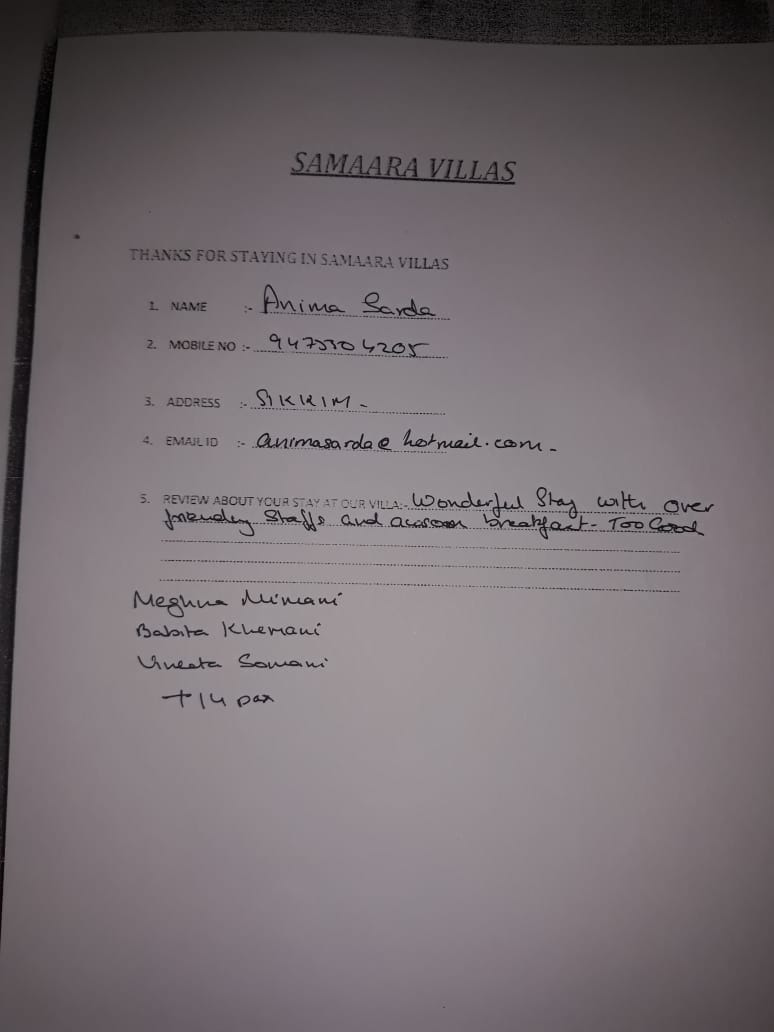 SAMAARA VILLAS
THANKS FOR STAYING IN SAMAARA VILLAS
1. NAME :- Anima Sarda
2. MOBILE NO :-
3. ADDRESS :- SIKKIM -
4. EMAIL ID :- animasarda@hotmail.com -
5. REVIEW ABOUT YOUR STAY AT OUR VILLA:- Wonderful Stay with over
friendly Staffs and breakfast - Too Good
Meghna Mimani
Babita Khemani
Vineeta Somani
+ 14 pax